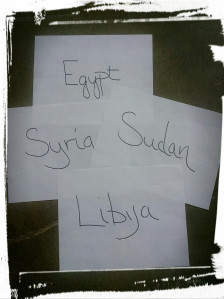 Egypt
Syria Sudan
Libya